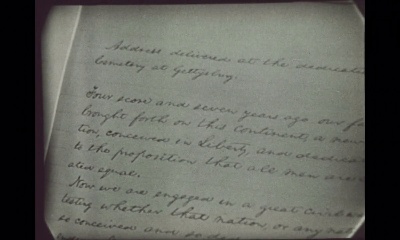 Address delivered at the dedicati
Cemetery at Gettysburg.
Four score and seven years ago our fa
brought forth on this continent, a new
tion, conceived in Liberty, and dedicat
to the proposition that all men are cre
ated equal.
Now we are engaged in a great civil wa
testing whether that nation, or any nati
so conceived and so de